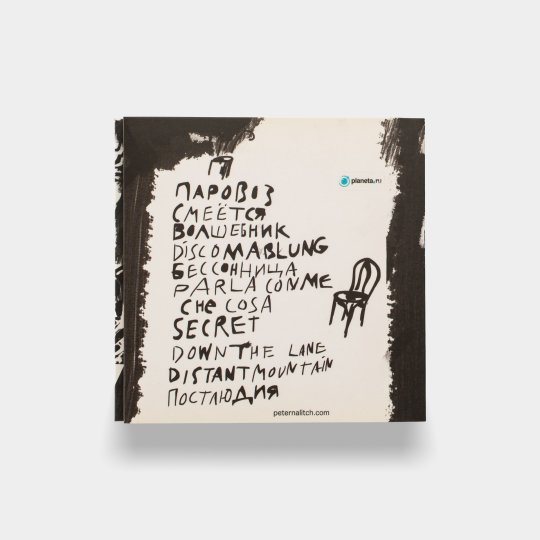 planeta.ru
ПАРОВОЗ
СМЕЁТСЯ
ВОЛШЕБНИК
DISCO MABLUNG
БЕССОННИЦА
PARLA CON ME
CHE COSA
SECRET
DOWN THE LANE
DISTANT MOUNTAIN
ПОСТЛЮДИЯ
peternalitch.com